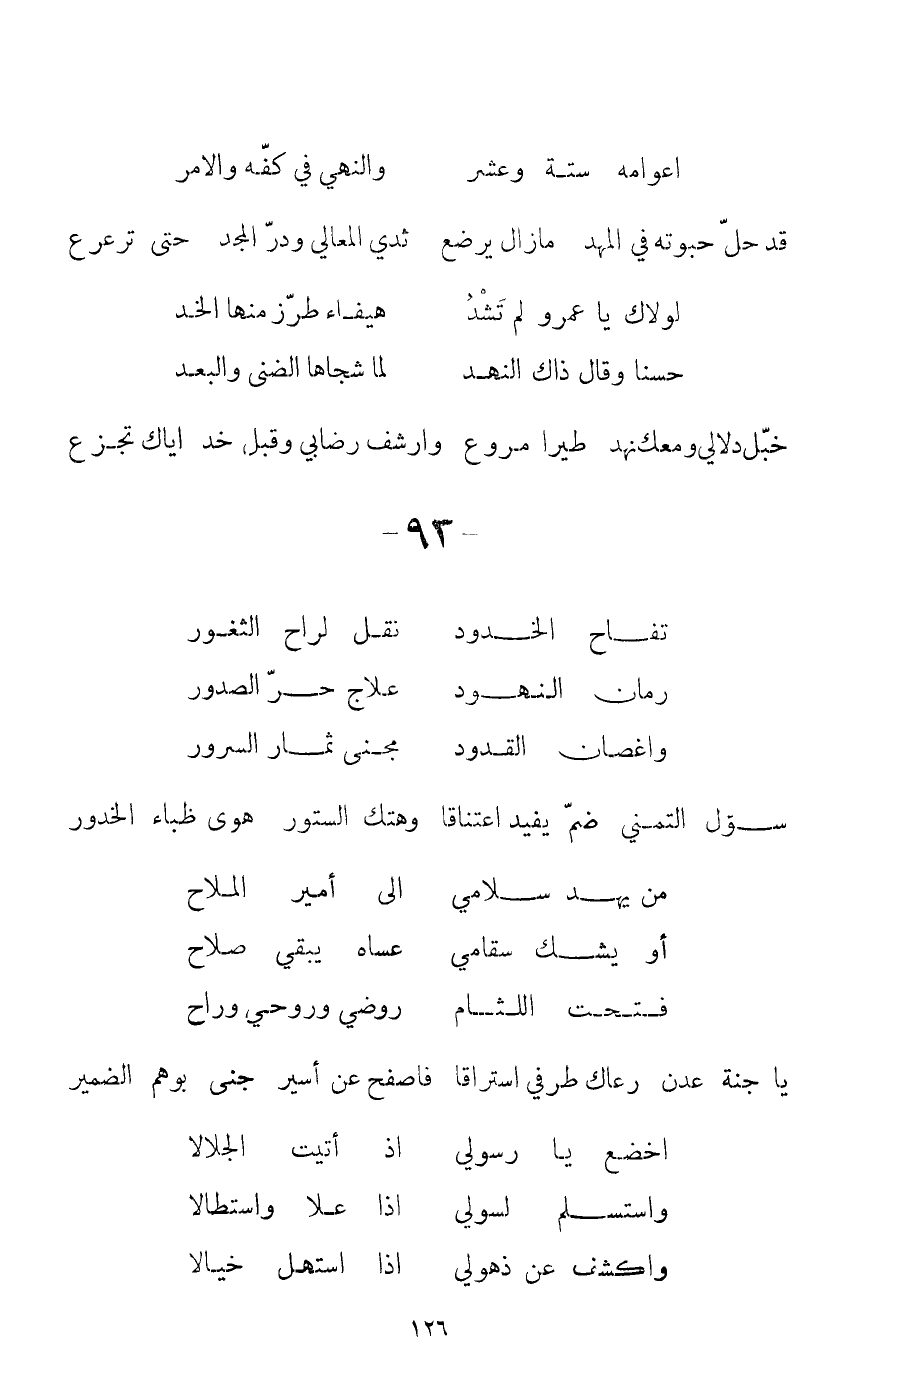 اعوامه ستة وعشر والنهي في كفّه والامر
قد حلّ حبوته في المهد مازال يرضع ثدي المعالي ودرّ المجد حتى ترعرع
لولاك يا عمرو لم تَشْدُ هيفاء طرّز منها الخد
حسنا وقال ذاك النهد لما شجاها الضنى والبعد
خبّل دلالي ومعك نهد طيرا مروع وارشف رضابي وقبل خد اياك تجزع
- ٩٣ -
تفاح الخدود نقل لراح الثغور
رمان النهود علاج حرّ الصدور
واغصان القدود مجنى ثمار السرور
سؤل التمني ضمّ يفيد اعتناقا وهتك الستور هوى ظباء الخدور
من يهد سلامي الى أمير الملاح
أو يشك سقامي عساه يبقي صلاح
فتحت اللثام روضي وروحي وراح
يا جنة عدن رعاك طرفي استراقا فاصفح عن أسير جنى بوهم الضمير
اخضع يا رسولي اذ أتيت الجلالا
واستسلم لسولي اذا علا واستطالا
واكشف عن ذهولي اذا استهل خيالا
١٢٦